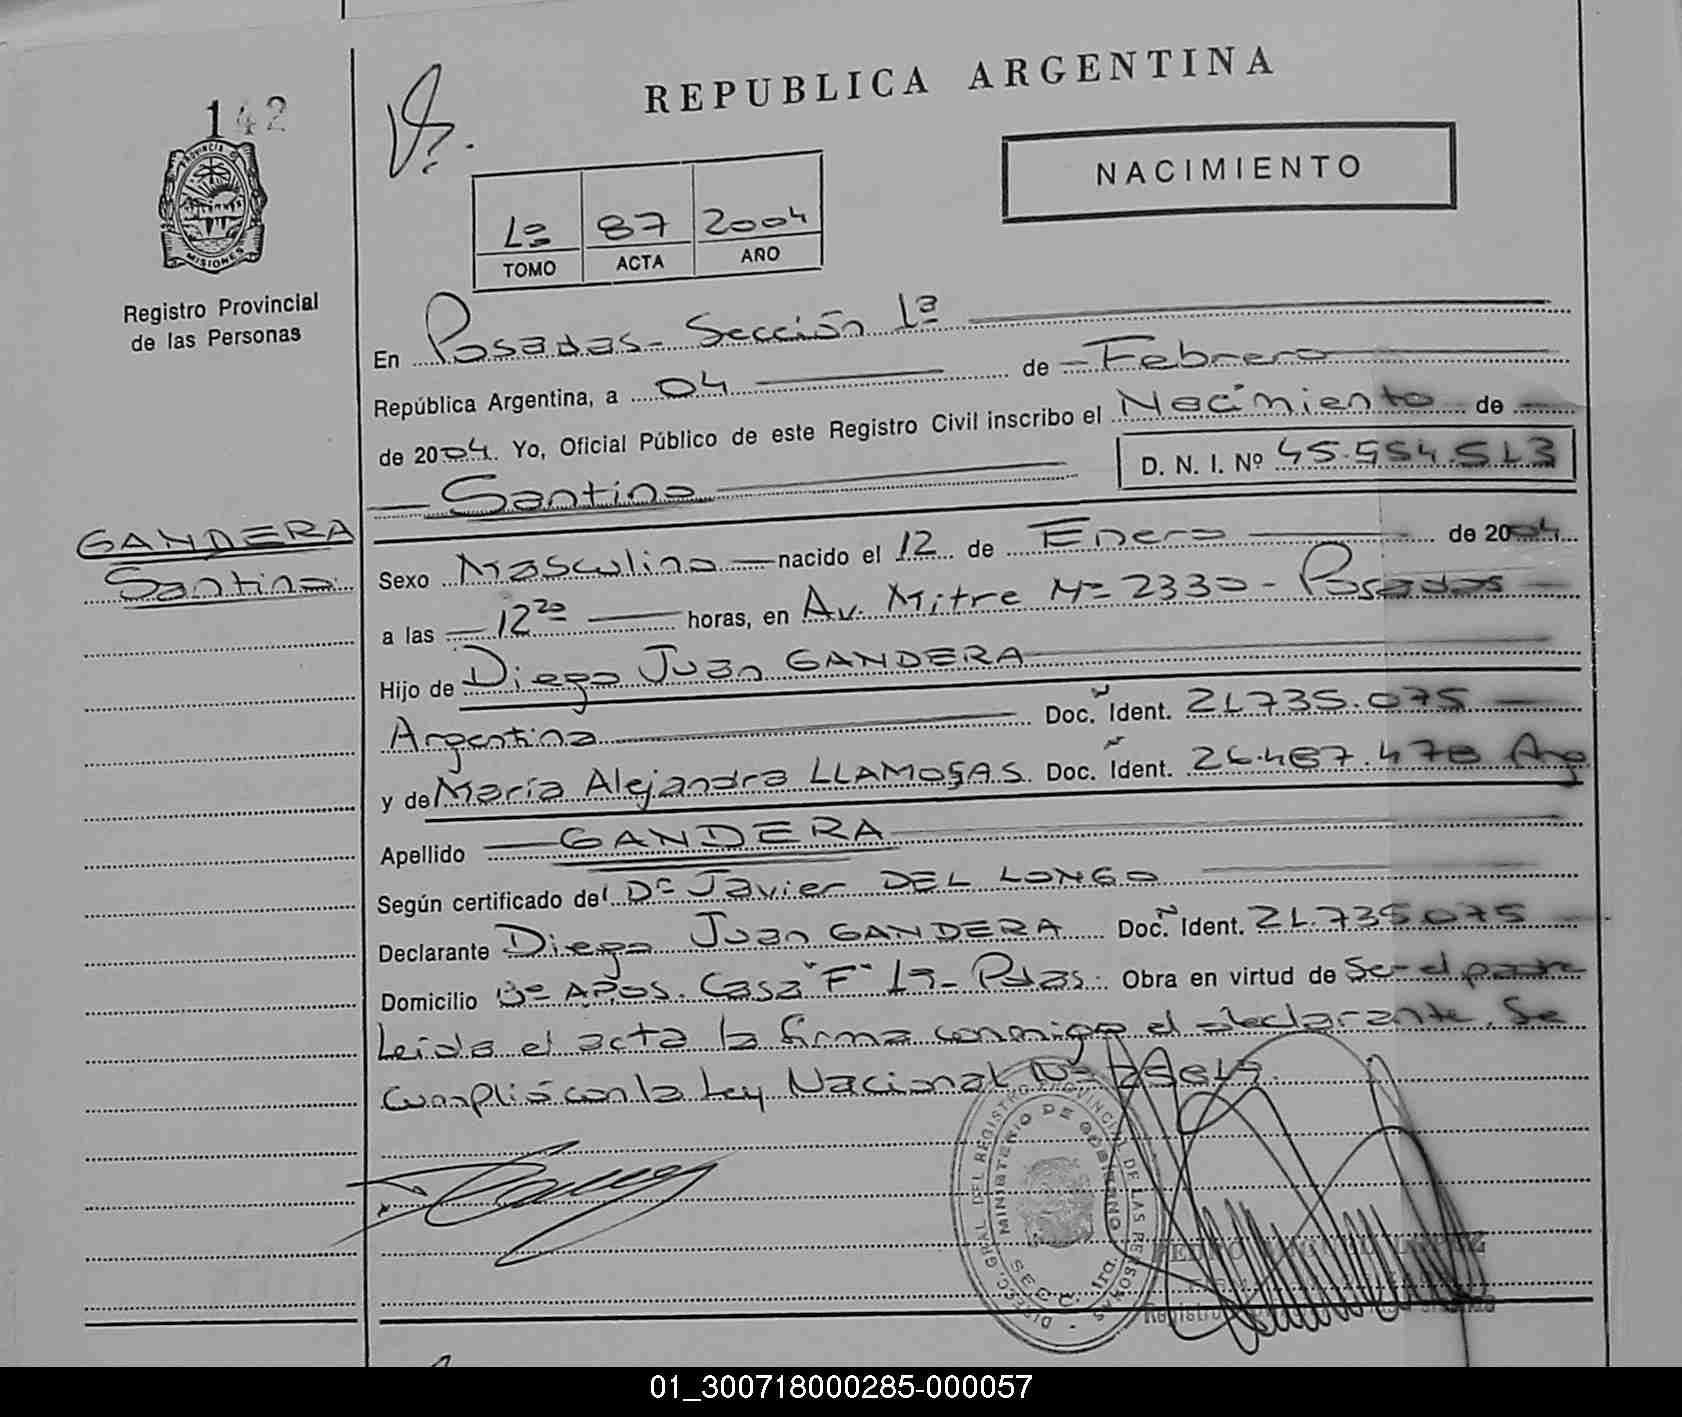 142
PROVINCIA DE
MISIONES
Registro Provincial
de las Personas
REPUBLICA ARGENTINA
NACIMIENTO
1º 87 2004
TOMO ACTA AÑO
En Posadas - Sección 1ª
República Argentina, a 04 de Febrero
de 2004. Yo, Oficial Público de este Registro Civil inscribo el Nacimiento de
D. N. I. Nº 45.554.513
Santino
GANDERA
Santino
Sexo Masculino nacido el 12 de Enero de 2004
a las 12²⁰ horas, en Av. Mitre Nº 2330 - Posadas
Hijo de Diego Juan GANDERA
Argentino Doc. Ident. 21.735.075
y de María Alejandra LLAMOSAS Doc. Ident. 26.467.470 Arg
Apellido GANDERA
Según certificado del Dr Javier DEL LONGO
Declarante Diego Juan GANDERA Doc. Ident. 21.735.075
Domicilio Bº A.P.O.S. Casa "F" 19 - Pdas. Obra en virtud de Ser el padre
Leída el acta la firma conmigo el declarante. Se
cumplió con la Ley Nacional Nº
DIREC. GRAL DEL REGISTRO PROVINCIAL DE LAS PERSONAS
MINISTERIO DE GOBIERNO
SECC. 1ra.
01_300718000285-000057